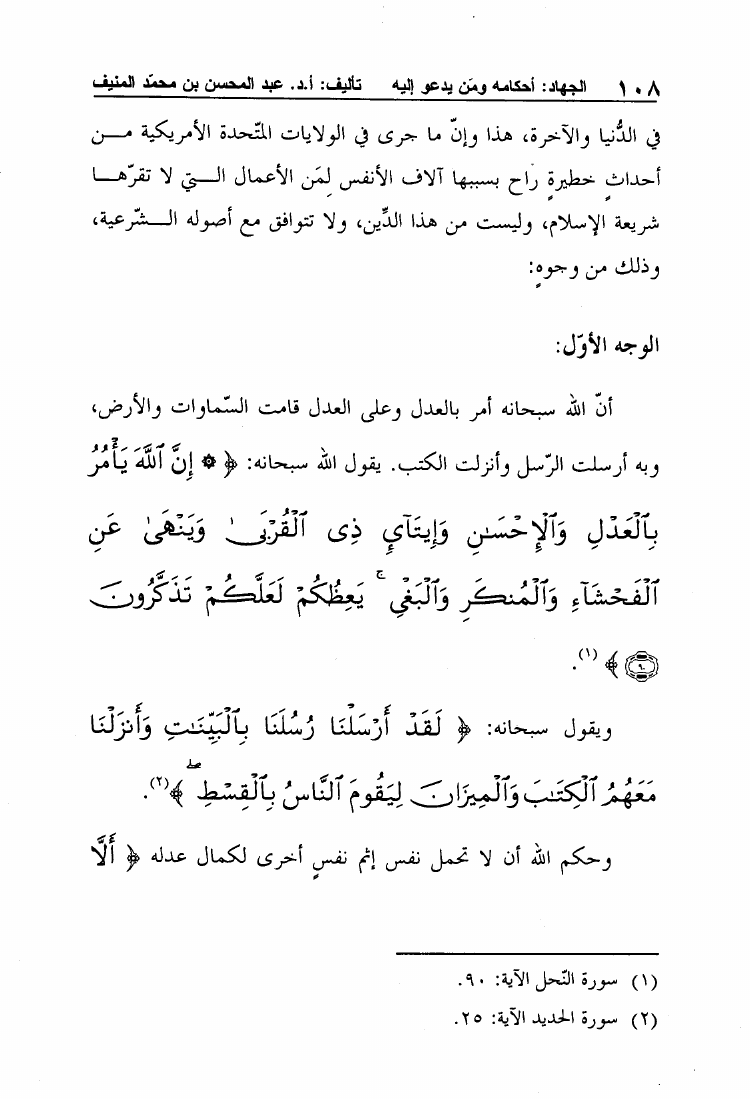 ١٠٨ الجهاد: أحكامه ومَن يدعو إليه تأليف: أ.د. عبد المحسن بن محمّد المنيف
في الدُّنيا والآخرة، هذا وإنّ ما جرى في الولايات المتّحدة الأمريكية مــن
أحداثٍ خطيرةٍ راح بسببها آلاف الأنفس لمَن الأعمال الــتي لا تقرّهــا
شريعة الإسلام، وليست من هذا الدِّين، ولا تتوافق مع أصوله الــشّرعية،
وذلك من وجوهٍ:
الوجه الأوّل:
أنّ الله سبحانه أمر بالعدل وعلى العدل قامت السّماوات والأرض،
وبه أرسلت الرّسل وأنزلت الكتب. يقول الله سبحانه: ﴿ ۞ إِنَّ ٱللَّهَ يَأْمُرُ
بِٱلْعَدْلِ وَٱلْإِحْسَـٰنِ وَإِيتَآيِٕ ذِى ٱلْقُرْبَىٰ وَيَنْهَىٰ عَنِ
ٱلْفَحْشَآءِ وَٱلْمُنكَرِ وَٱلْبَغْىِ ۚ يَعِظُكُمْ لَعَلَّكُمْ تَذَكَّرُونَ
۝٩٠ ﴾(١).
ويقول سبحانه: ﴿ لَقَدْ أَرْسَلْنَا رُسُلَنَا بِٱلْبَيِّنَـٰتِ وَأَنزَلْنَا
مَعَهُمُ ٱلْكِتَـٰبَ وَٱلْمِيزَانَ لِيَقُومَ ٱلنَّاسُ بِٱلْقِسْطِ ۖ ﴾(٢).
وحكم الله أن لا تحمل نفس إثم نفسٍ أخرى لكمال عدله ﴿ أَلَّا
(١) سورة النّحل الآية: ٩٠.
(٢) سورة الحديد الآية: ٢٥.